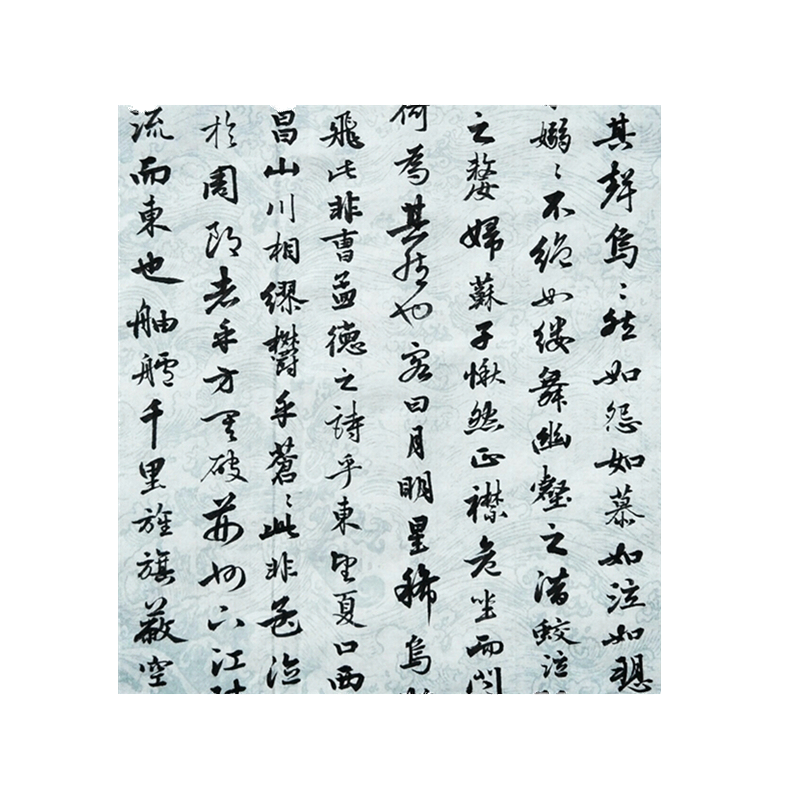 其聲烏〻然如怨如慕如泣如
嫋〻不絕如縷舞幽壑之潛蛟泣
之嫠婦蘇子愀然正襟危坐而問
何為其然也客曰月明星稀烏
飛此非曹孟德之詩乎東望夏口西
昌山川相繆鬱乎蒼〻此非
於周郎者乎方其破荊州下江
流而東也舳艫千里旌旗蔽空